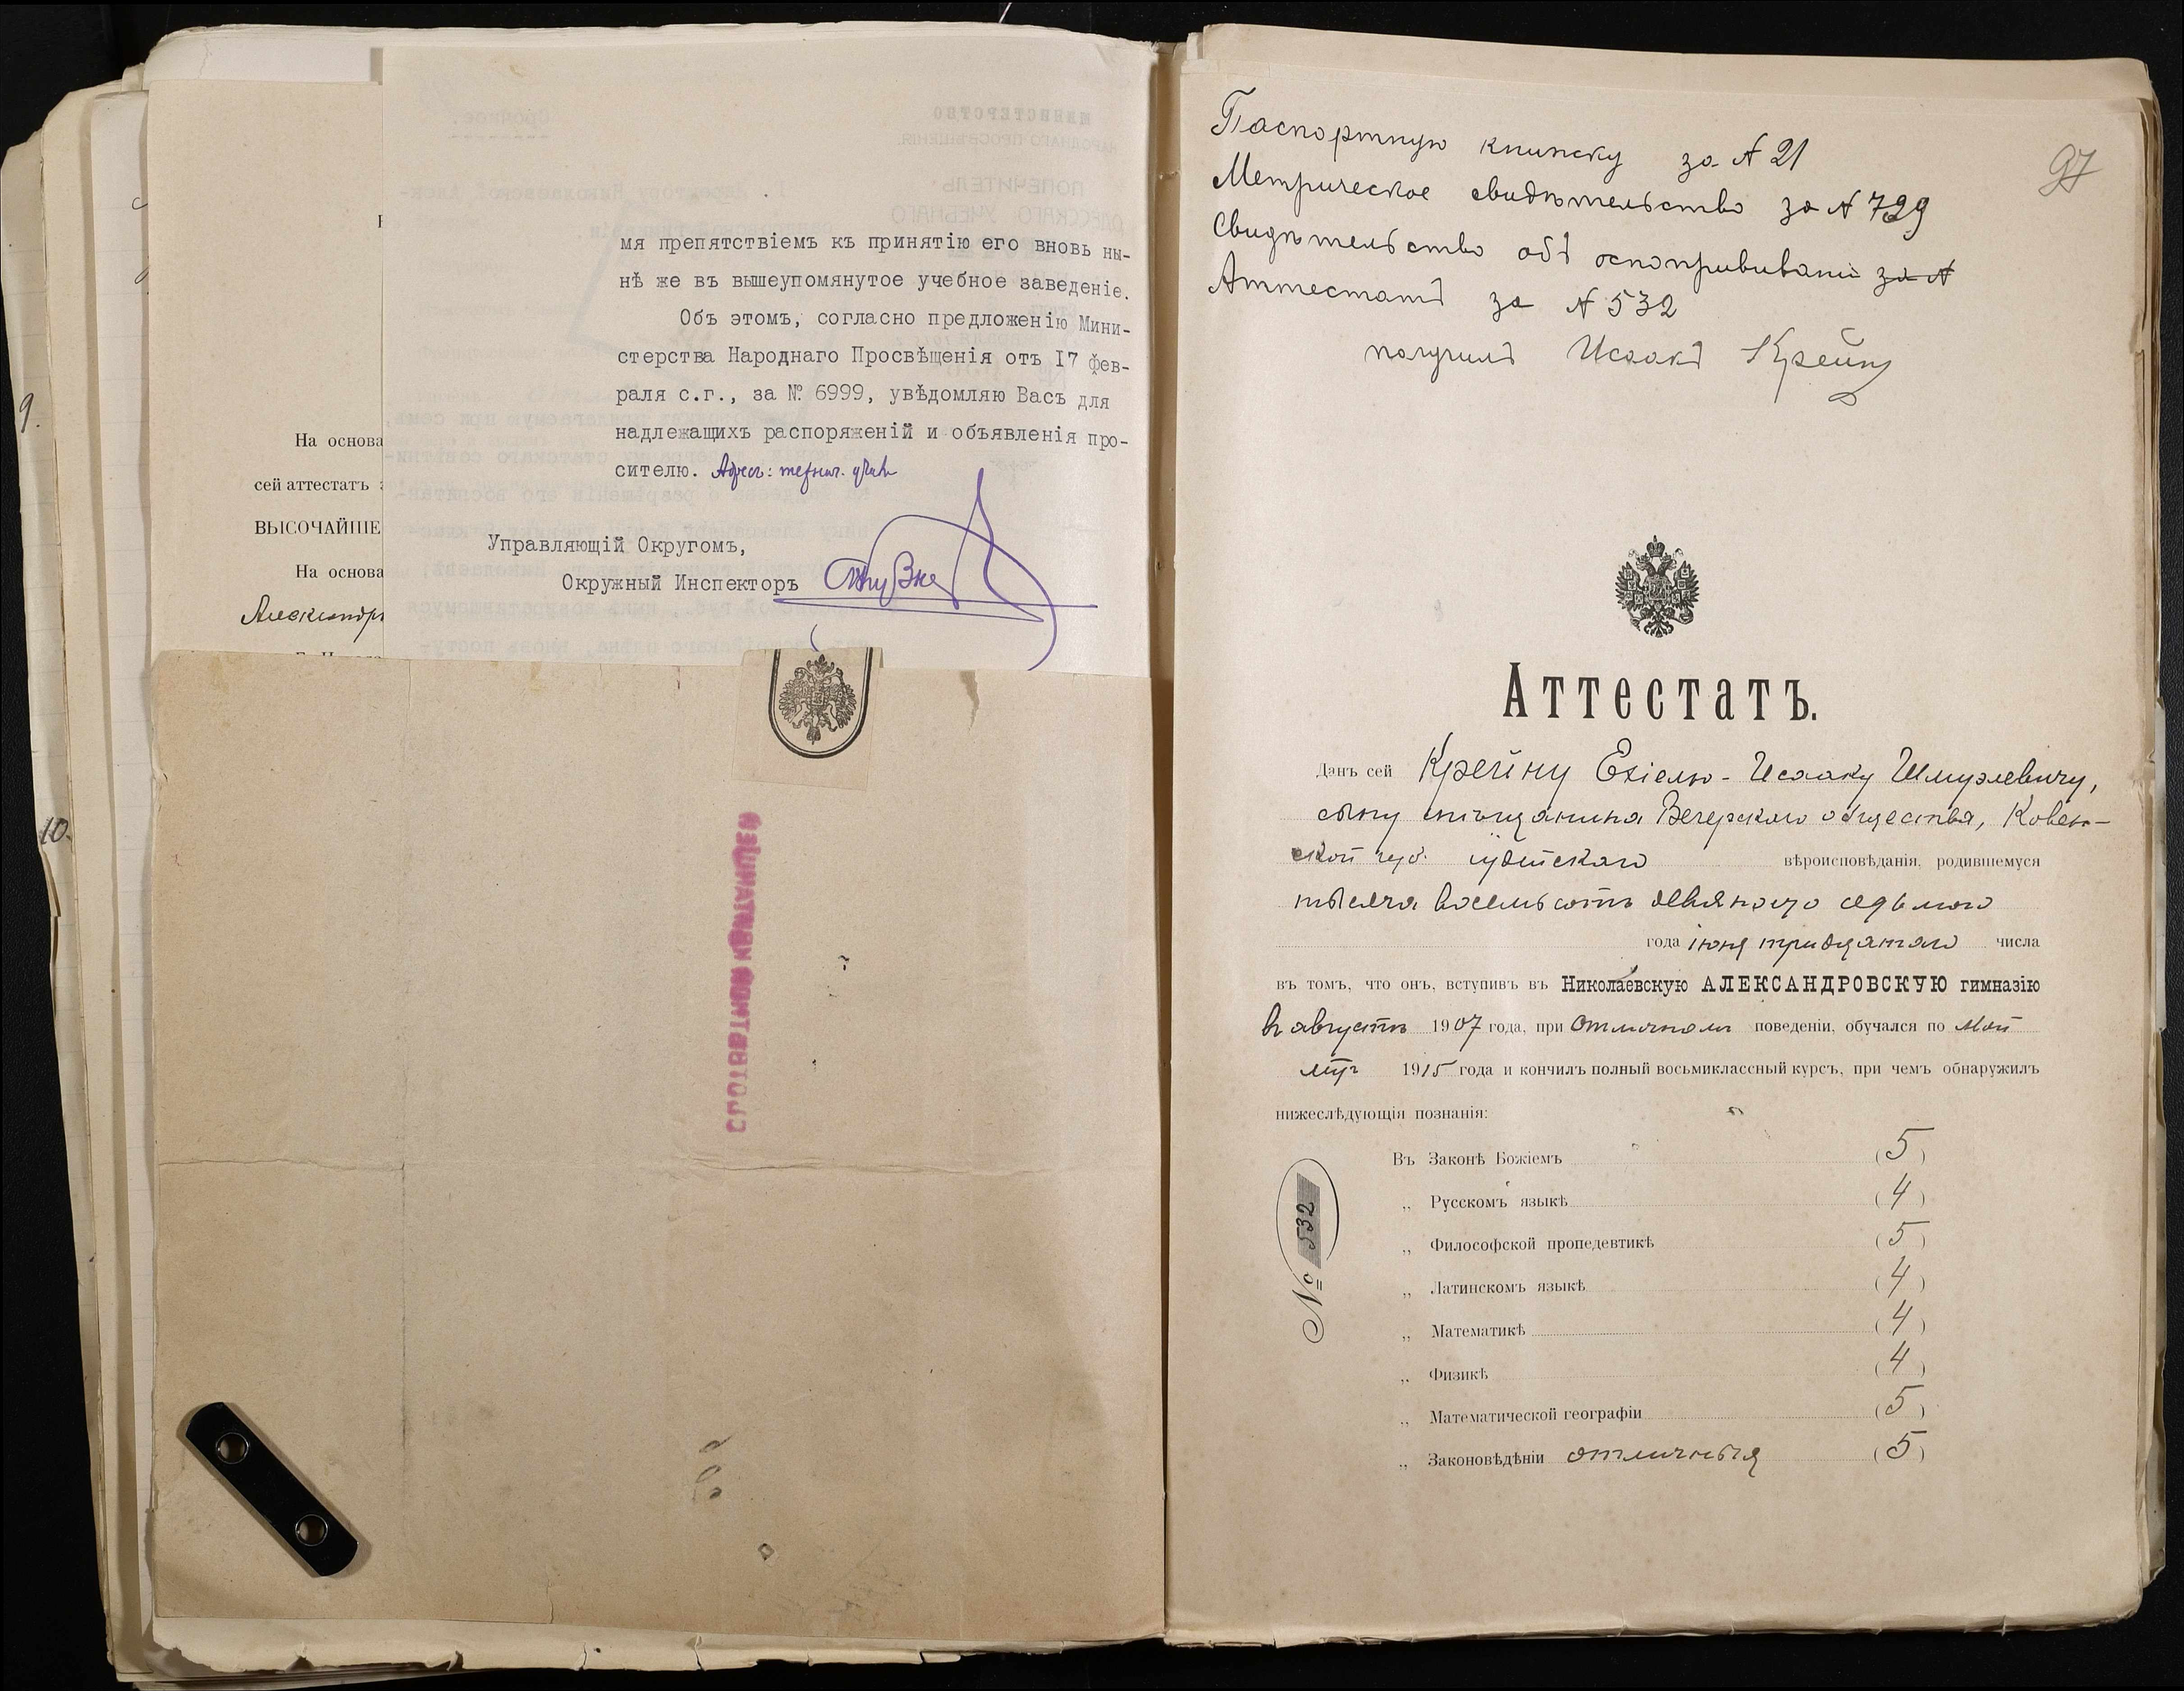 9.
10.
На основа
сей аттестатъ
ВЫСОЧАЙШЕ
На основа
Александр
мя препятствіемъ къ принятію его вновь ны-
нѣ же въ вышеупомянутое учебное заведеніе.
Объ этомъ, согласно предложенію Мини-
стерства Народнаго Просвѣщенія отъ I7 фев-
раля с.г., за № 6999, увѣдомляю Васъ для
надлежащихъ распоряженій и объявленія про-
сителю. Адресъ:
Управляющій Округомъ,
Окружный Инспекторъ
97
Паспортную книжку за № 21
Метрическое свидѣтельство за № 729
Свидѣтельство объ оспопрививаніи за №
Аттестатъ за № 532
получилъ Исаакъ Крейнъ
Аттестатъ.
Данъ сей Крейну Ехіелю-Исааку Шмуэлевичу,
сыну мѣщанина Вегерскаго общества, Ковен-
ской губ. іудейскаго вѣроисповѣданія, родившемуся
тысяча восемьсотъ девяносто седьмого
года іюня тридцатаго числа
въ томъ, что онъ, вступивъ въ Николаевскую АЛЕКСАНДРОВСКУЮ гимназію
въ августѣ 1907 года, при отличномъ поведеніи, обучался по май
мѣс. 1915 года и кончилъ полный восьмиклассный курсъ, при чемъ обнаружилъ
нижеслѣдующія познанія:
Въ Законѣ Божіемъ (5)
„ Русскомъ языкѣ (4)
„ Философской пропедевтикѣ (5)
„ Латинскомъ языкѣ (4)
„ Математикѣ (4)
„ Физикѣ (4)
„ Математической географіи (5)
„ Законовѣдѣніи отличныя (5)
№ 532